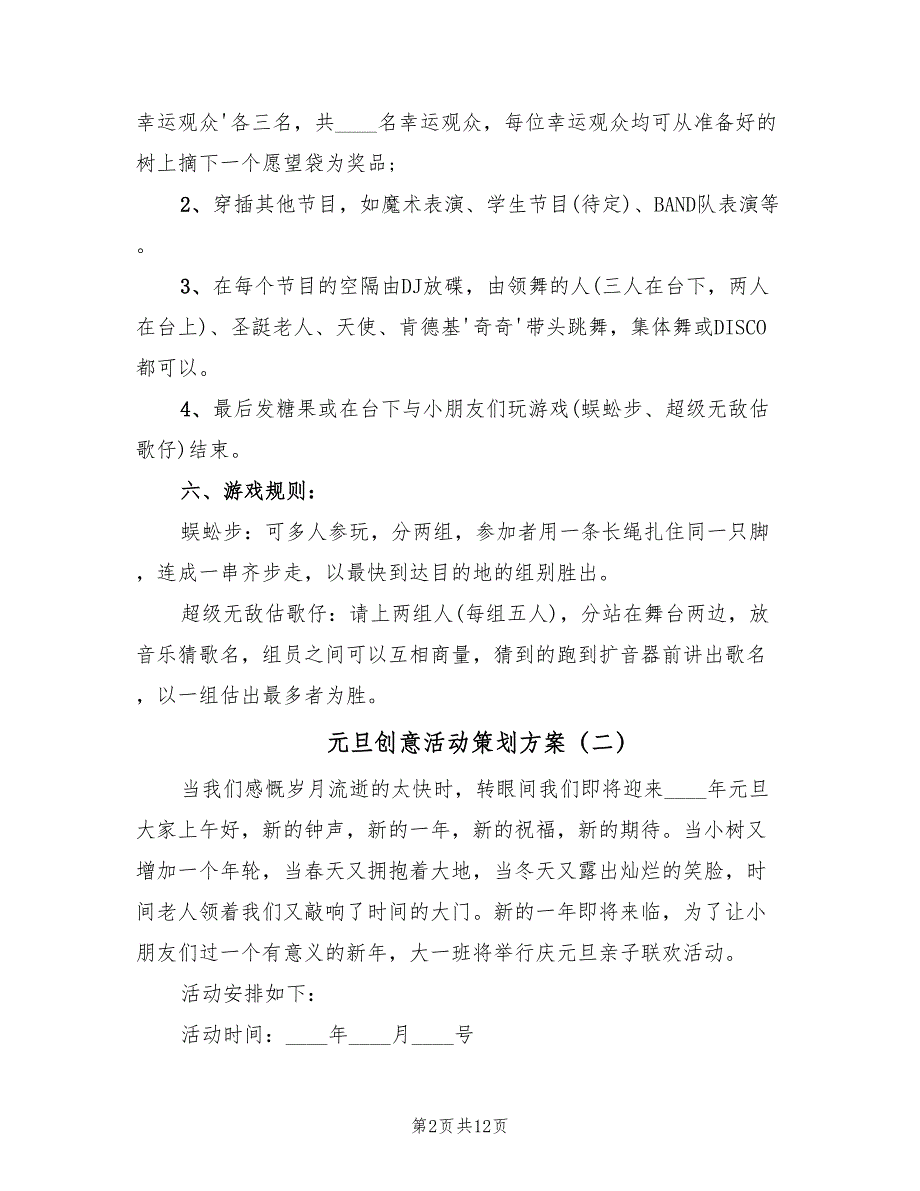 幸运观众'各三名，共____名幸运观众，每位幸运观众均可从准备好的
树上摘下一个愿望袋为奖品;
2、穿插其他节目，如魔术表演、学生节目(待定)、BAND队表演等
。
3、在每个节目的空隔由DJ放碟，由领舞的人(三人在台下，两人
在台上)、圣誔老人、天使、肯德基'奇奇'带头跳舞，集体舞或DISCO
都可以。
4、最后发糖果或在台下与小朋友们玩游戏(蜈蚣步、超级无敌估
歌仔)结束。
六、游戏规则：
蜈蚣步：可多人参玩，分两组，参加者用一条长绳扎住同一只脚
，连成一串齐步走，以最快到达目的地的组别胜出。
超级无敌估歌仔：请上两组人(每组五人)，分站在舞台两边，放
音乐猜歌名，组员之间可以互相商量，猜到的跑到扩音器前讲出歌名
，以一组估出最多者为胜。
元旦创意活动策划方案（二）
当我们感慨岁月流逝的太快时，转眼间我们即将迎来____年元旦
大家上午好，新的钟声，新的一年，新的祝福，新的期待。当小树又
增加一个年轮，当春天又拥抱着大地，当冬天又露出灿烂的笑脸，时
间老人领着我们又敲响了时间的大门。新的一年即将来临，为了让小
朋友们过一个有意义的新年，大一班将举行庆元旦亲子联欢活动。
活动安排如下：
活动时间：____年____月____号
第2页共12页